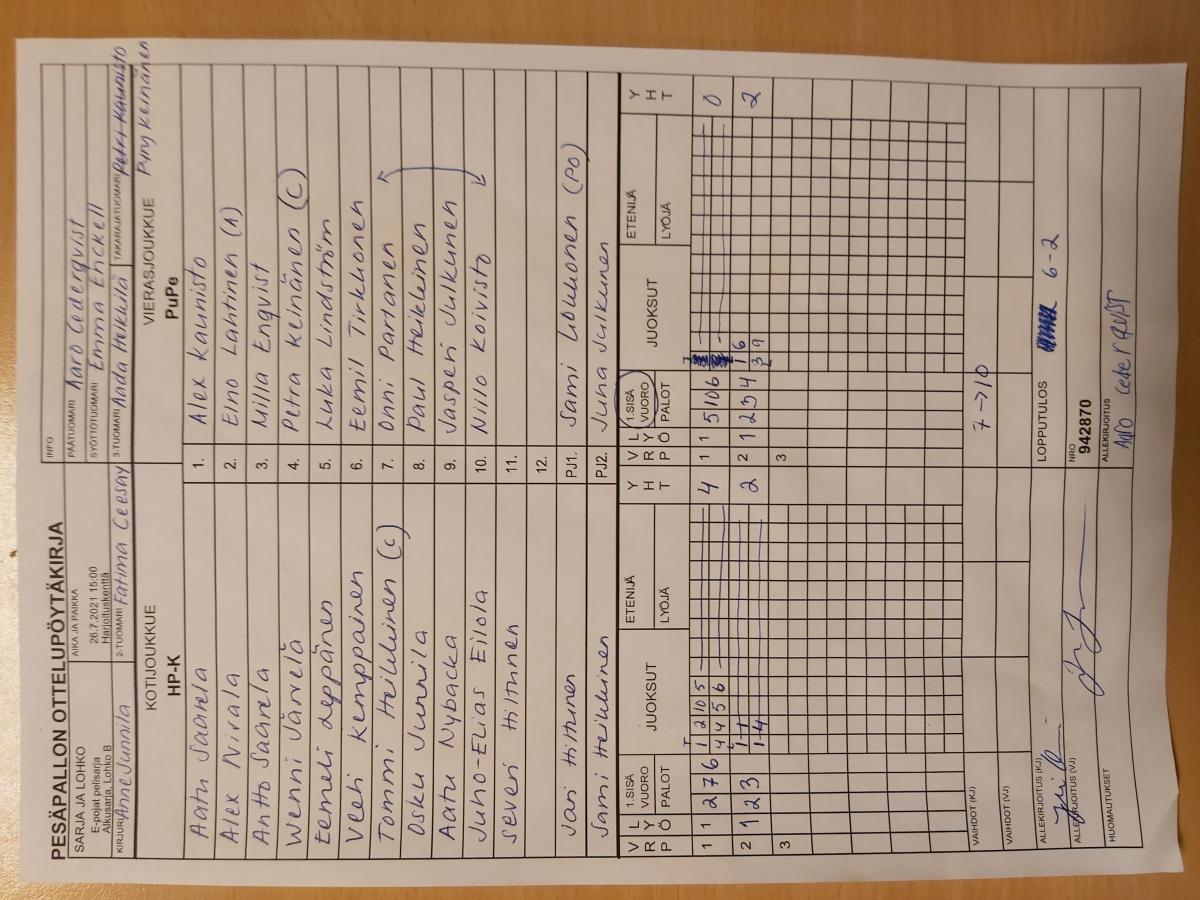 PESÄPALLON OTTELUPÖYTÄKIRJA
INFO
SARJA JA LOHKO
E-pojat pelisarja
Alkusarja, Lohko B
AIKA JA PAIKKA
26.7.2021 15:00
Harjoituskenttä
PÄÄTUOMARI Aaro Cederqvist
SYÖTTÖTUOMARI Emma Enckell
KIRJURI Anne Junnila
2-TUOMARI Fatima Ceesay
3-TUOMARI Aada Heikkilä
TAKARAJATUOMARI Petri Kaunisto
KOTIJOUKKUE
HP-K
VIERASJOUKKUE
PuPe
Aatu Saarela 1. Alex Kaunisto
Alex Nirala 2. Eino Lahtinen
Antto Saarela 3. Milla Enqvist
Wenni Järvelä 4. Petra Keinänen (C)
Eemeli Leppänen 5. Luka Lindström
Veeti Kemppainen 6. Eemil Tirkkonen
Tommi Heikkinen (C) 7. Onni Partanen
Osku Junnila 8. Paul Heikkinen
Aatu Nybacka 9. Jasperi Julkunen
Juho-Elias Eilola 10. Niilo Koivisto
Severi Hiltunen 11.
12.
Jari Hiltunen PJ1. Sami Liukkonen (PO)
Sami Heikkinen PJ2. Juha Julkunen
V R P L Y Ö 1.SISÄ VUORO PALOT JUOKSUT ETENIJÄ LYÖJÄ Y H T
V R P L Y Ö 1.SISÄ VUORO PALOT JUOKSUT ETENIJÄ LYÖJÄ Y H T
1 1 2 7 6 1 2 10 5 4
4 4 5 6
1 1 5 10 6 0
2 1 2 3 1 1 2
1 4
2 1 2 3 4 1 6 2
3 9
3
3
VAIHDOT (KJ) 7→10
VAIHDOT (VJ)
ALLEKIRJOITUS (KJ)
LOPPUTULOS 6-2
ALLEKIRJOITUS (VJ)
NRO
942870
HUOMAUTUKSET
ALLEKIRJOITUS
Aaro Cederqvist